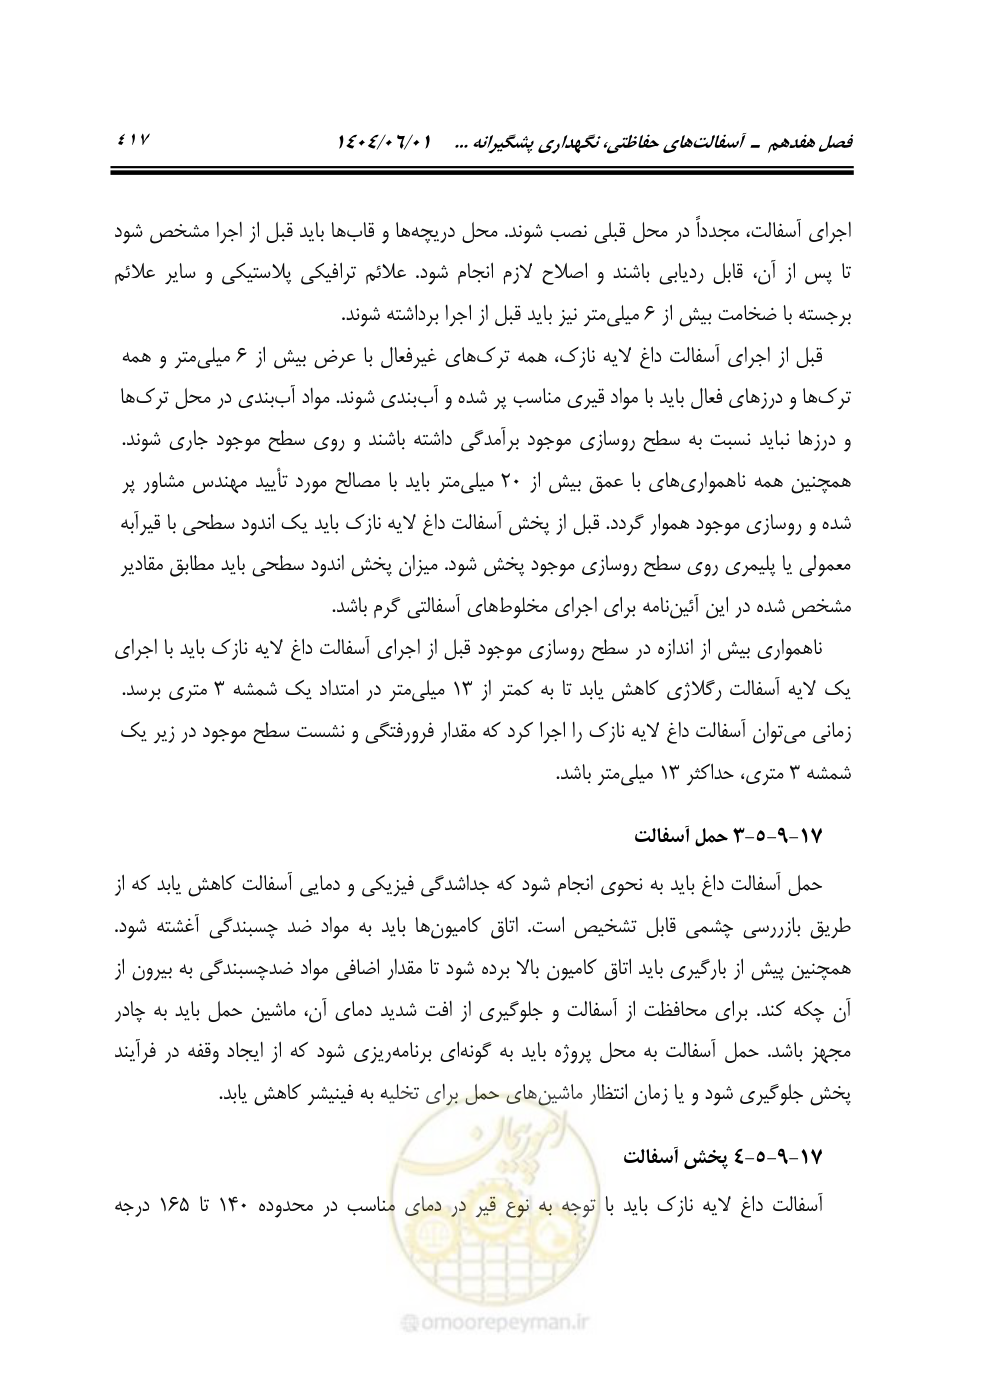 فصل هفدهم – آسفالت‌های حفاظتی، نگهداری پشگیرانه ... ۱۴۰۴/۰۶/۰۱ ۴۱۷
اجرای آسفالت، مجدداً در محل قبلی نصب شوند. محل دریچه‌ها و قاب‌ها باید قبل از اجرا مشخص شود
تا پس از آن، قابل ردیابی باشند و اصلاح لازم انجام شود. علائم ترافیکی پلاستیکی و سایر علائم
برجسته با ضخامت بیش از ۶ میلی‌متر نیز باید قبل از اجرا برداشته شوند.
قبل از اجرای آسفالت داغ لایه نازک، همه ترک‌های غیرفعال با عرض بیش از ۶ میلی‌متر و همه
ترک‌ها و درزهای فعال باید با مواد قیری مناسب پر شده و آب‌بندی شوند. مواد آب‌بندی در محل ترک‌ها
و درزها نباید نسبت به سطح روسازی موجود برآمدگی داشته باشند و روی سطح موجود جاری شوند.
همچنین همه ناهمواری‌های با عمق بیش از ۲۰ میلی‌متر باید با مصالح مورد تأیید مهندس مشاور پر
شده و روسازی موجود هموار گردد. قبل از پخش آسفالت داغ لایه نازک باید یک اندود سطحی با قیرآبه
معمولی یا پلیمری روی سطح روسازی موجود پخش شود. میزان پخش اندود سطحی باید مطابق مقادیر
مشخص شده در این آئین‌نامه برای اجرای مخلوط‌های آسفالتی گرم باشد.
ناهمواری بیش از اندازه در سطح روسازی موجود قبل از اجرای آسفالت داغ لایه نازک باید با اجرای
یک لایه آسفالت رگلاژی کاهش یابد تا به کمتر از ۱۳ میلی‌متر در امتداد یک شمشه ۳ متری برسد.
زمانی می‌توان آسفالت داغ لایه نازک را اجرا کرد که مقدار فرورفتگی و نشست سطح موجود در زیر یک
شمشه ۳ متری، حداکثر ۱۳ میلی‌متر باشد.
۱۷-۹-۵-۳ حمل آسفالت
حمل آسفالت داغ باید به نحوی انجام شود که جداشدگی فیزیکی و دمایی آسفالت کاهش یابد که از
طریق بازررسی چشمی قابل تشخیص است. اتاق کامیون‌ها باید به مواد ضد چسبندگی آغشته شود.
همچنین پیش از بارگیری باید اتاق کامیون بالا برده شود تا مقدار اضافی مواد ضدچسبندگی به بیرون از
آن چکه کند. برای محافظت از آسفالت و جلوگیری از افت شدید دمای آن، ماشین حمل باید به چادر
مجهز باشد. حمل آسفالت به محل پروژه باید به گونه‌ای برنامه‌ریزی شود که از ایجاد وقفه در فرآیند
پخش جلوگیری شود و یا زمان انتظار ماشین‌های حمل برای تخلیه به فینیشر کاهش یابد.
امور پیمان
۱۷-۹-۵-۴ پخش آسفالت
آسفالت داغ لایه نازک باید با توجه به نوع قیر در دمای مناسب در محدوده ۱۴۰ تا ۱۶۵ درجه
@omoorepeyman.ir